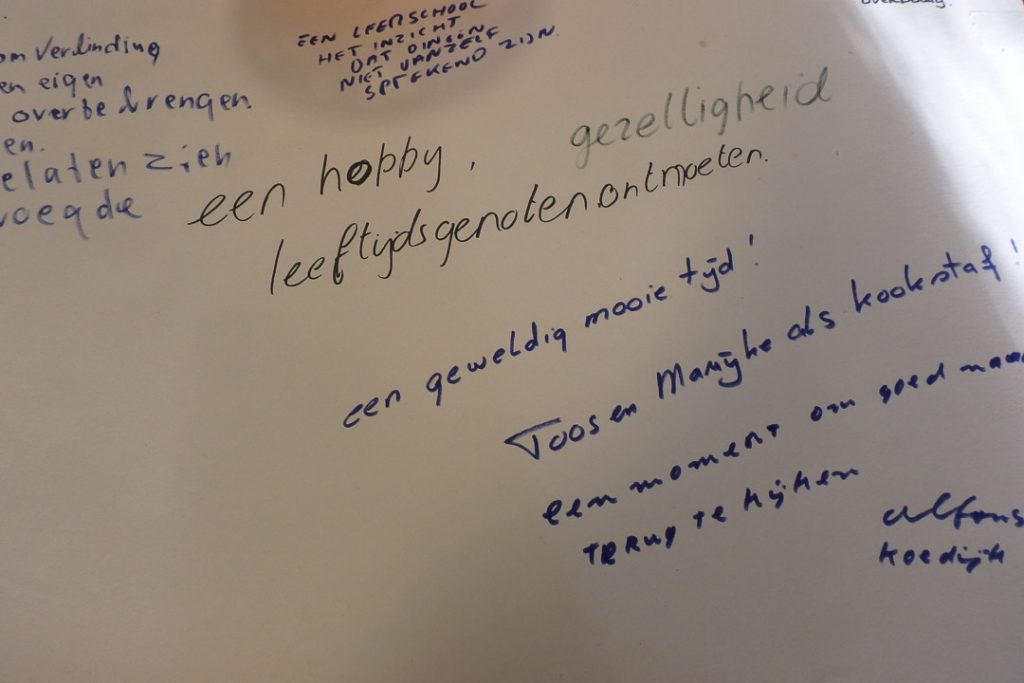 om verbinding
en eigen
over te brengen.
en.
laten zien
voegde
EEN LEERSCHOOL
HET INZICHT
DAT DINGEN
NIET VANZELF
SPREKEND ZIJN.
een hobby,
gezelligheid
leeftijdsgenoten ontmoeten.
een geweldig mooie tijd!
Toos en Marijke als kookstaf!
een moment om goed naar
terug te kijken
Alfons
Koedijk